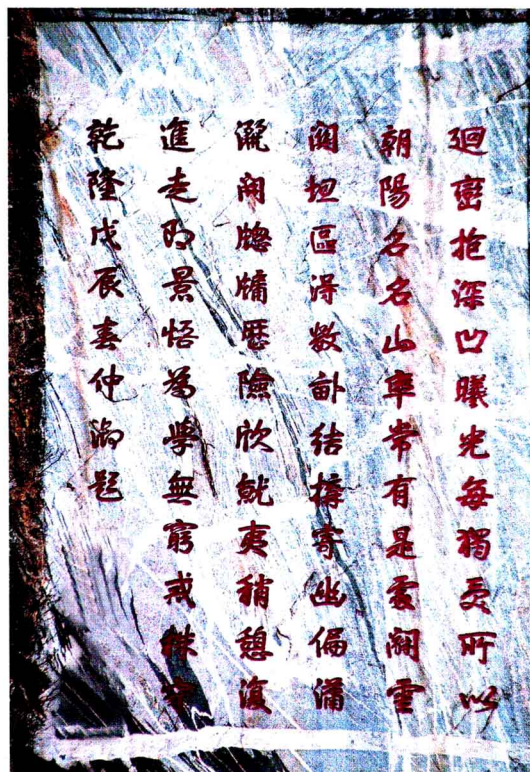 迴巒抱深凹曦光每獨受所以
朝陽名名山率常有是爰闢雲
關坦區得數畝結構寄幽偏瀟
灑開牕牖歷險欣就夷稍憩復
進走即景悟為學無窮戒株守
乾隆戊辰春仲御題